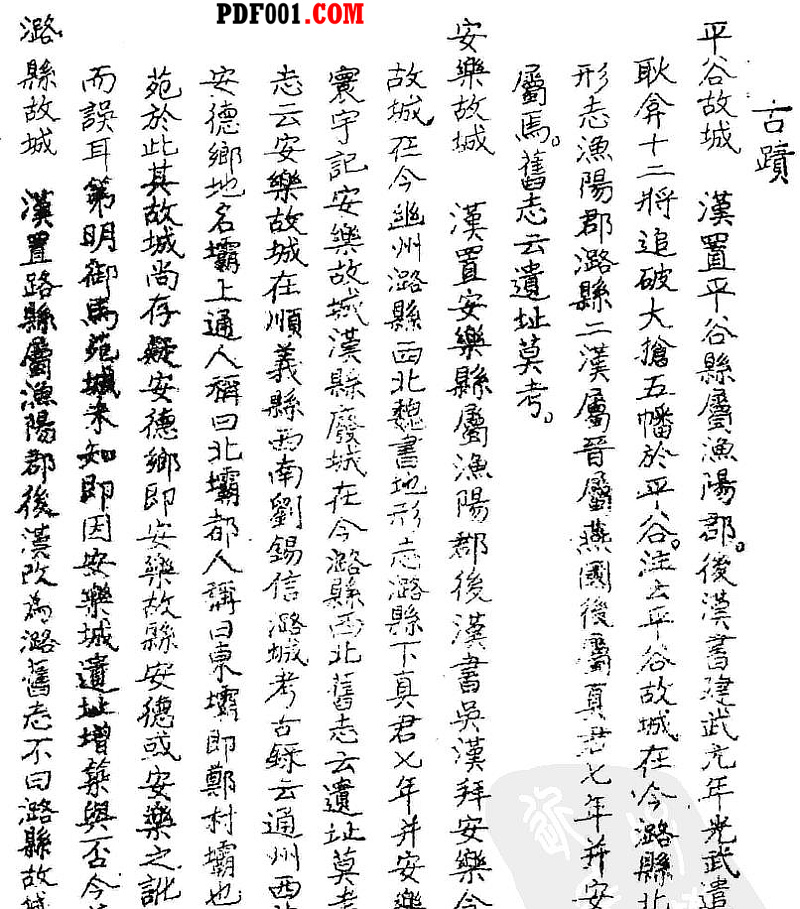 PDF001.COM
古蹟
平谷故城 漢置平谷縣屬漁陽郡。後漢書建武元年光武遣
耿弇十二將追破大搶五幡於平谷。注云平谷故城在今潞縣北
形志漁陽郡潞縣二漢屬晉屬燕國後屬真君七年并安
屬焉。舊志云遺址莫考。
安樂故城 漢置安樂縣屬漁陽郡後漢書吳漢拜安樂令
故城在今幽州潞縣西北魏書地形志潞縣下真君七年并安樂
寰宇記安樂故城漢縣廢城在今潞縣西北舊志云遺址莫考
志云安樂故城在順義縣西南劉錫信潞城考古録云通州西
安德鄉地名壩上通人稱曰北壩都人稱曰東壩即鄭村壩也
苑於此其故城尚存疑安德鄉即安樂故縣安德或安樂之訛
而誤耳第明御馬苑城未知即因安樂城遺址增築與否今
潞縣故城 漢置路縣屬漁陽郡後漢改為潞舊志不曰潞縣故城